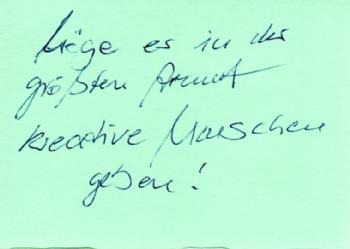 Möge es in der
größten Armut
kreative Menschen
geben!